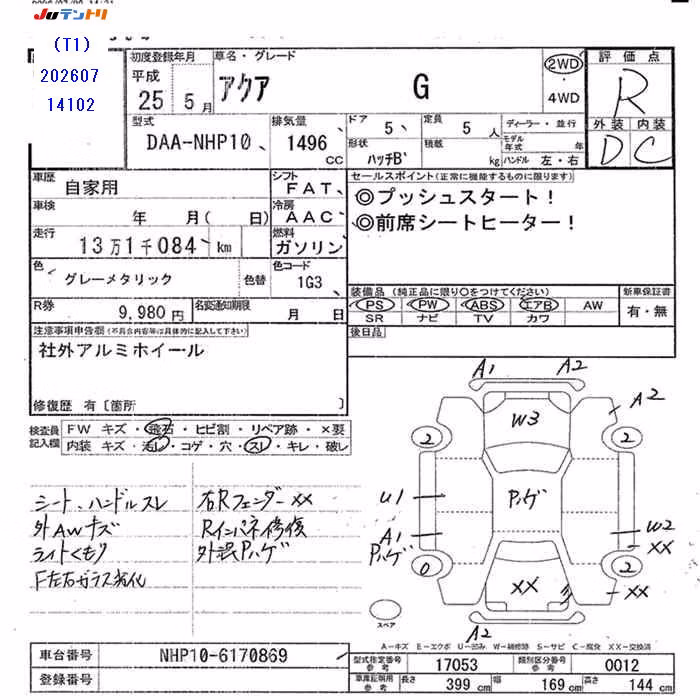 JUテントリ
(T1)
202607
14102
初度登録年月
平成
25 5月
車名・グレード
アクア G
2WD
・
4WD
評価点
R
外装 内装
D C
型式
DAA-NHP10
排気量
1496
CC
ドア
5
定員
5人
ディーラー・並行
形状
ハッチB
積載
kg
モデル年式 年
ハンドル 左・右
車歴
自家用
シフト
FAT
セールスポイント(正常に機能するものに限ります)
◎プッシュスタート!
◎前席シートヒーター!
車検
年 月( 日)
冷房
AAC
走行
13万1千084 km
燃料
ガソリン
色
グレーメタリック
色替
色コード
1G3
装備品(純正品に限り○をつけてください)
PS PW ABS エアB AW
SR ナビ TV カワ
新車保証書
有・無
R券
9,980円
名変通知期限
月 日
後日品
注意事項申告欄(不具合内容等は具体的に記入して下さい)
社外アルミホイール
修復歴 有〔箇所 〕
検査員
記入欄
FW キズ・飛石・ヒビ割・リペア跡・×要
内装 キズ・汚レ・コゲ・穴・スレ・キレ・破レ
シート、ハンドルスレ
外AWキズ
ライトくもり
F左右ガラス劣化
右Rフェンダー××
Rインパネ修復
外装Pハゲ
A1 A2
A2
W3
2 2
U1
Pハゲ
A1
Pハゲ
W2
××
0 2
××
××
A2
スペア
A-キズ E-エクボ U-凹み W-補修跡 S-サビ C-腐食 XX-交換済
車台番号
NHP10-6170869
登録番号
型式指定番号
参考
17053
類別区分番号
参考
0012
車庫証明用
参考
長さ
399cm
幅
169cm
高さ
144cm